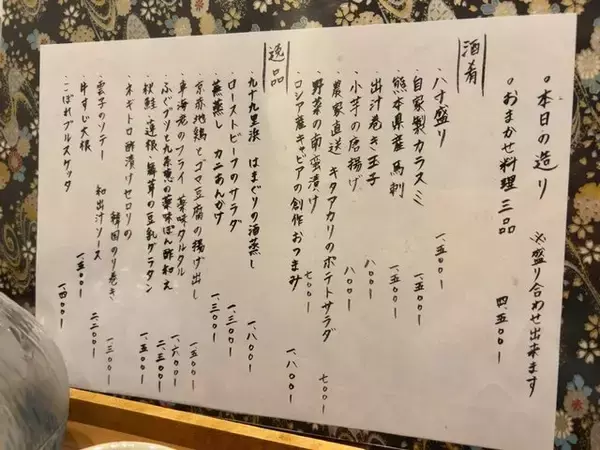 ○本日の造り ※盛り合わせ出来ます
○おまかせ料理三品 四、五〇〇ー
酒肴
・八寸盛り 一、五〇〇ー
・自家製カラスミ 一、五〇〇ー
・熊本県産馬刺 一、五〇〇ー
・出汁巻き玉子 八〇〇ー
・小芋の唐揚げ 八〇〇ー
・農家直送 キタアカリのポテトサラダ 七〇〇ー
・野菜の南蛮漬け 七〇〇ー
・ロシア産キャビアの創作おつまみ 一、八〇〇ー
逸品
・九十九里浜 はまぐりの酒蒸し 一、八〇〇ー
・ローストビーフのサラダ 一、三〇〇ー
・蕪蒸し カニあんかけ 一、三〇〇ー
・京赤地鶏とゴマ豆腐の揚げ出し 一、五〇〇ー
・車海老のフライ 薬味タルタル 一、六〇〇ー
・ふぐブツと九条葱の薬味ぽん酢和え 二、三〇〇ー
・秋鮭・蓮根・舞茸の豆乳グラタン 一、五〇〇ー
・ネギトロ酢漬けセロリの
韓国のり巻き 一、三〇〇ー
・雲子のソテー 和出汁ソース 二、二〇〇ー
・牛すじ大根 一、五〇〇ー
・こぼれブルスケッタ 一、四〇〇ー